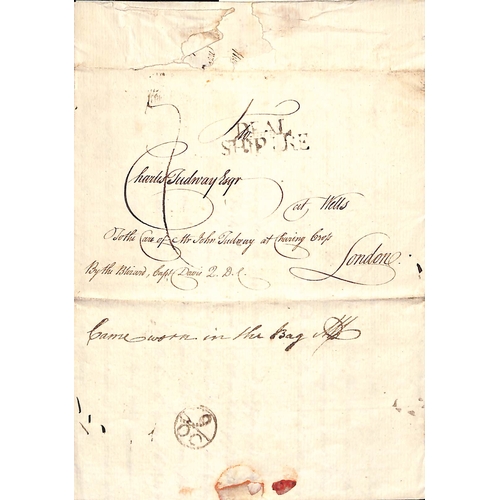 To
DEAL
SHIP LRE
Charles Tudway Esqr
at, Wells
To the Care of Mr John Tudway at Charing Cross
London.
By the Blizard, Capt Davis Q. D. C.
Came worn in the Bag